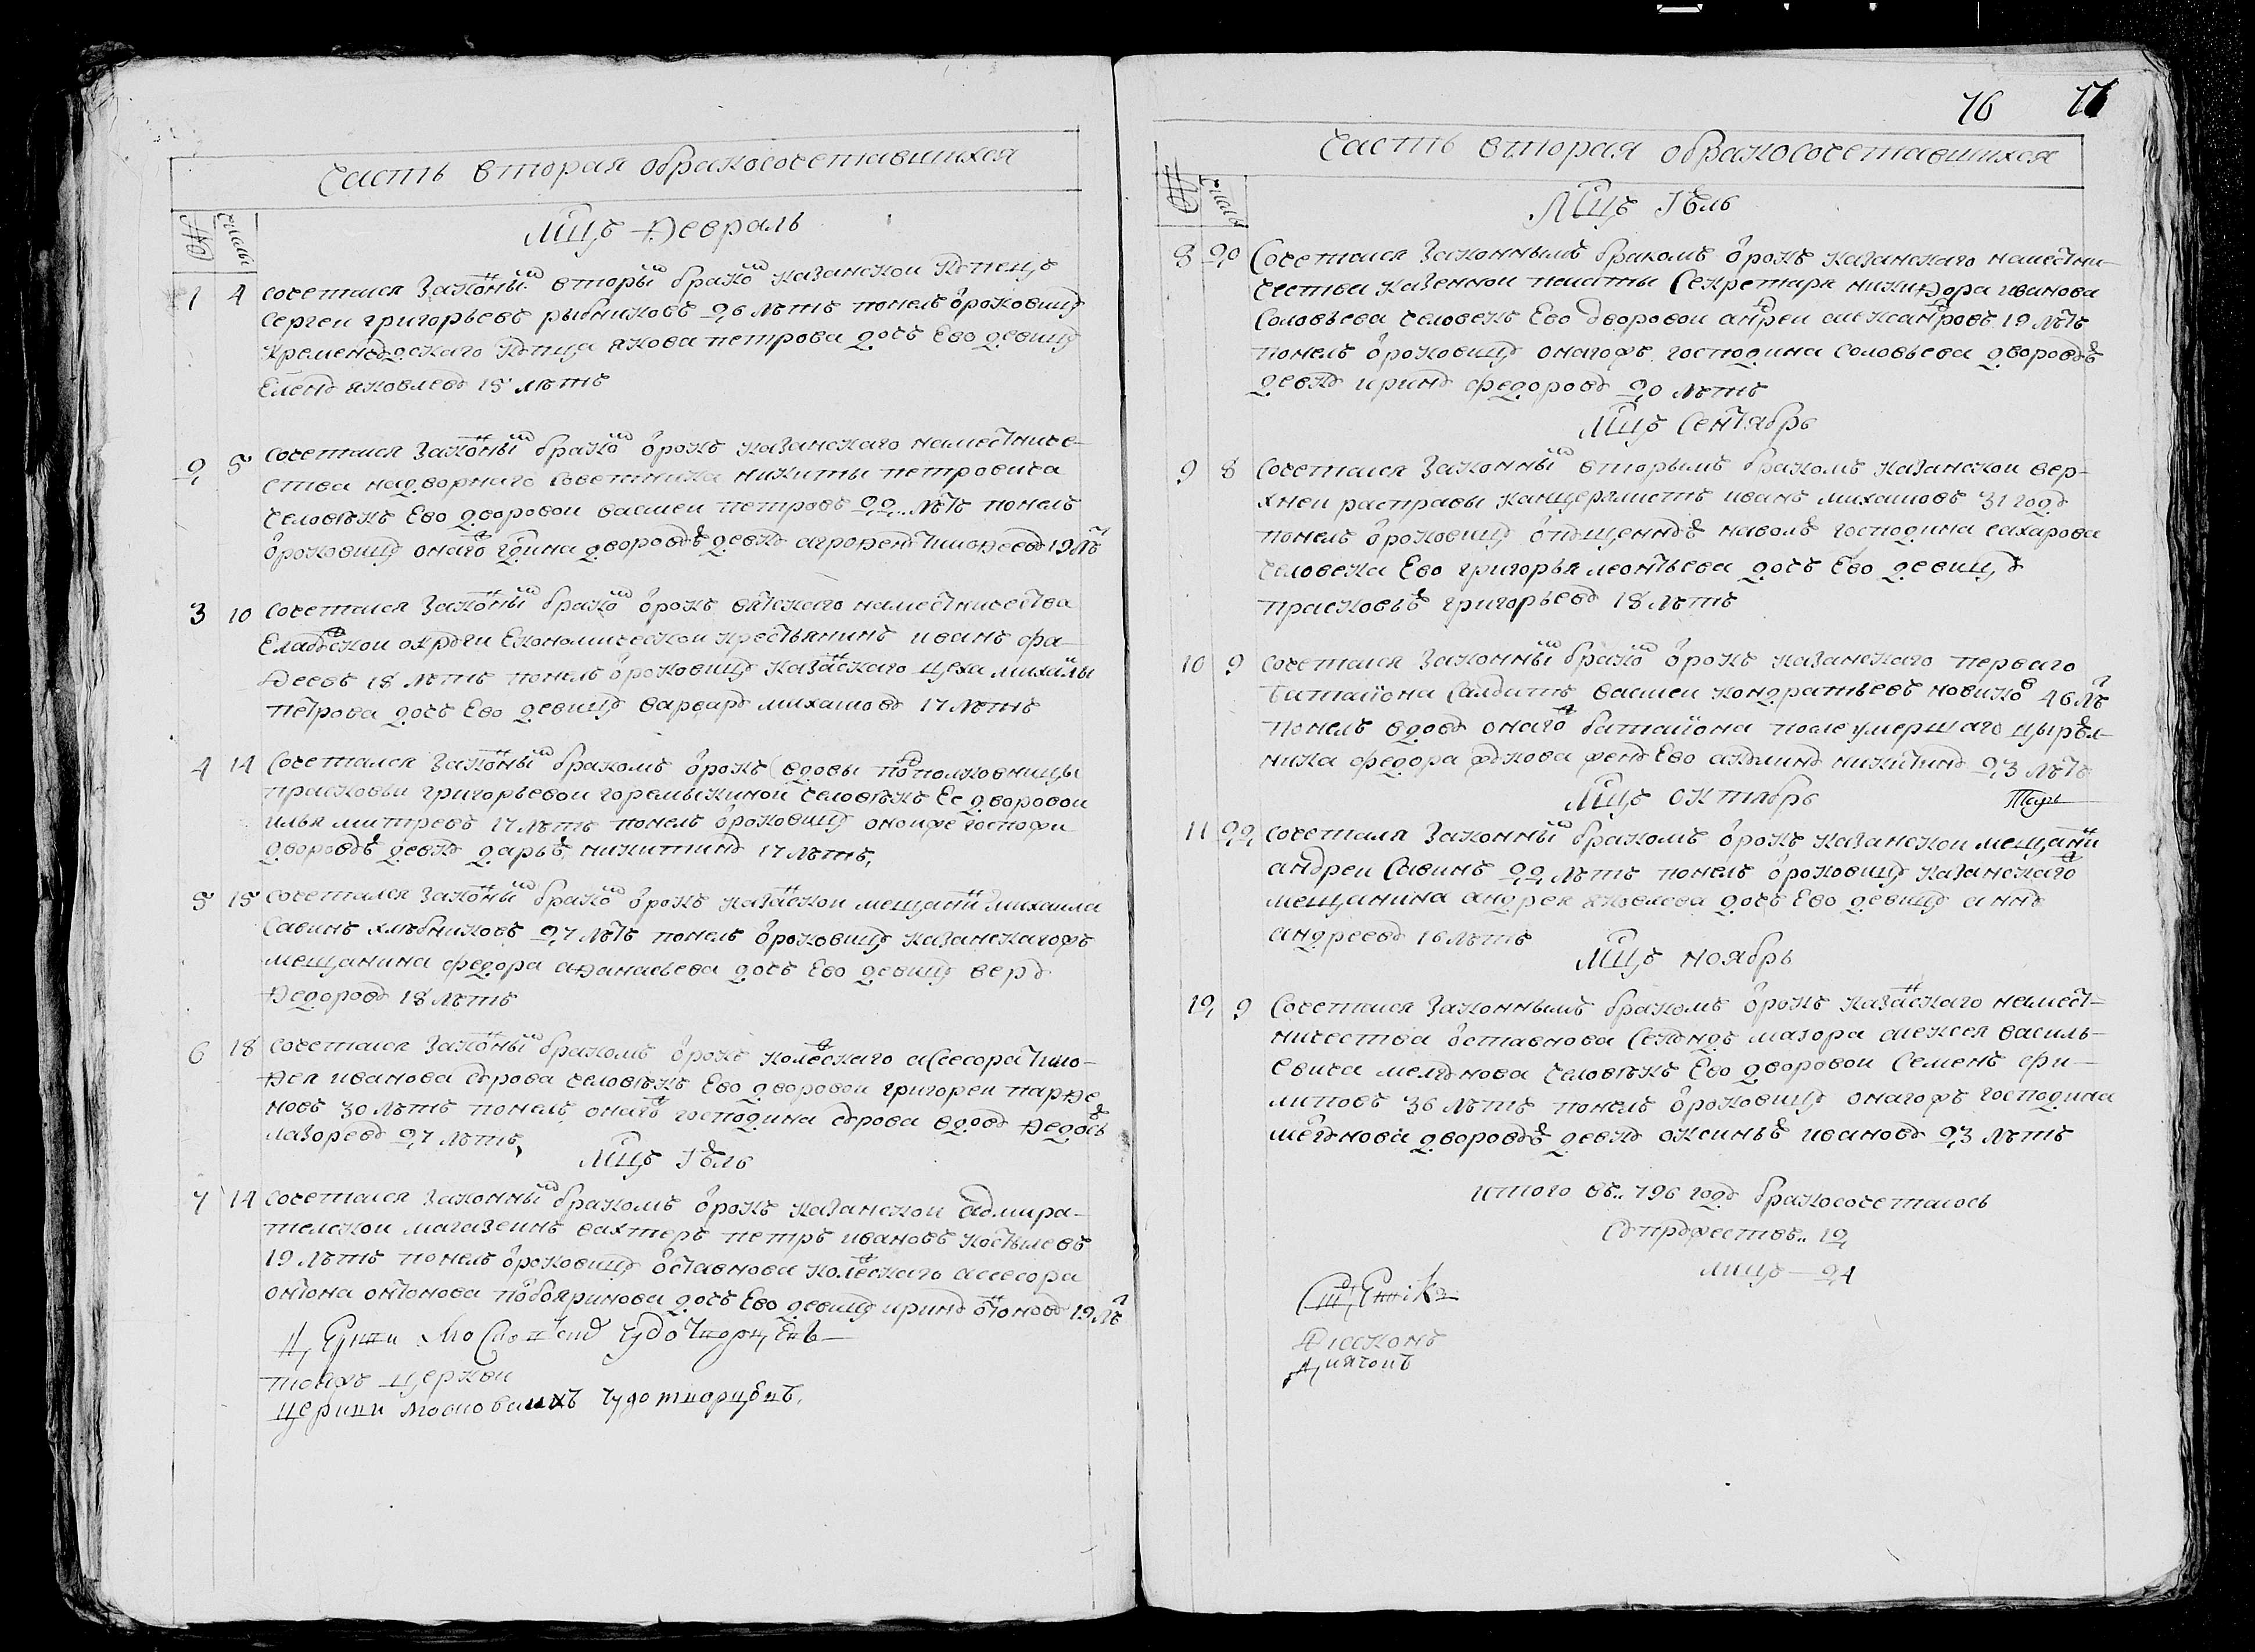 часть вторая обракосочетавшихся
№ числы
мцъ Февраль
1 4 сочетался законны вторы брако казанскои купецъ
Сергеи григорьевъ рыбниковъ 26 летъ понелъ отроковицу
кременскаго купца якова петрова дочь Ево девицу
Елену яковлеву 18 летъ
2 5 сочетался законны брако отрокъ казанскаго наместниче-
ства надворнаго советника никиты петровича
человекъ Ево дворовои василеи петровъ 22 летъ понелъ
отроковицу онаго гдина дворовую девку агрофену тимофееву 19 ле
3 10 сочетался законны брако отрокъ вятскаго наместничества
Елабскои округи Економическои крестьянинъ иванъ фа-
деевъ 18 летъ понелъ отроковицу казанскаго цеха михаилы
петрова дочь Ево девицу варвару михаилову 17 летъ
4 14 Сочетался законны бракомъ отрокъ вдовы подполковницы
прасковьи григорьевои горемыкинои человекъ Ее дворовои
илья митревъ 17 летъ понелъ отроковицу оноиже госпожи
дворовую девку дарью никитину 17 летъ
5 15 сочетался законны брако отрокъ казанскои мещанин михаила
Савинъ хлебниковъ 27 летъ понелъ отроковицу казанскагожъ
мещанина федора афанасьева дочь Ево девицу веру
Федорову 18 летъ
6 18 сочетался законны бракомъ отрокъ колескаго ассесора тимо-
фея иванова сурова человекъ Ево дворовои григореи парфе
новъ 30 летъ понелъ онаго господина сурова вдову Федосю
лазореву 27 летъ
мцъ Июль
7 14 сочетался законны бракомъ отрокъ казанскои адмира-
телскои магазеинъ вахтеръ петръ ивановъ костылевъ
19 летъ понелъ отроковицу отставнова колескаго ассесора
онтона онтонова подбояринова дочь Ево девицу ирину онтонову 19 ле
тояжъ церкви
церкви московскихъ чудотворцовъ
76
часть вторая обракосочетавшихся
№ числы
Мцъ Июль
8 20 Сочетался законнымъ бракомъ отрокъ казанскаго намесни-
чества казеннои палаты Секретаря никифора иванова
Соловьева человекъ Ево дворовои андреи александровъ 19 летъ
понелъ отроковицу онагожъ господина соловьева дворовую
девку ирину федорову 20 летъ
Мцъ Сентябрь
9 8 Сочетался законны вторымъ бракомъ казанскои вер-
хнеи расправы канцеляристъ иванъ михаиловъ 31 году
понелъ отроковицу отпущенную наволю господина сахарова
человека Ево григорья леонтьева дочь Ево девицу
прасковью григорьеву 18 летъ
10 9 сочетался законны брако отрокъ казанскаго перваго
баталиона Салдатъ василеи кондратьевъ новико 46 ле
понелъ вдову онаго баталиона после умершаго цырюл-
ника федора жукова жену Ево акулину никитину 23 летъ
Мцъ октябрь
11 22 сочеталя законны бракомъ отрокъ казанскои мещанин
андреи Савинъ 22 летъ понелъ отроковицу казанскаго
мещанина андрея яковлева дочь Ево девицу анну
андрееву 16 летъ
Мцъ ноябрь
12 9 Сочетался законнымъ бракомъ отрокъ казанскаго намест-
ничества отставнова Секундъ маэора алексея василь-
евича мелгунова человекъ Ево дворовои Семенъ фи-
липовъ 36 летъ понелъ отроковицу онагожъ господина
мелгунова дворовую девку оксинью иванову 23 летъ
итого въ.. 796 году бракосочеталось
Супружествъ.. 12
лицъ — 24
Дияконъ
Диячокъ